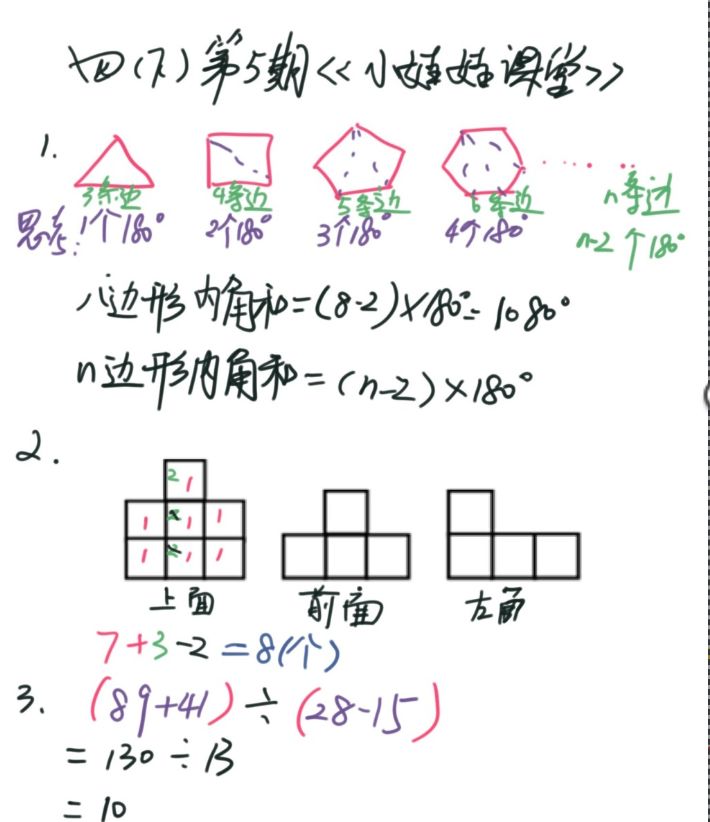 四(下)第5期<<小娃娃课堂>>
1.
3条边 4条边 5条边 6条边 ...... n条边
思考: 1个180° 2个180° 3个180° 4个180° n-2个180°
八边形内角和=(8-2)×180°=1080°
n边形内角和=(n-2)×180°
2.
2 1
1 2 1 1
1 2 1 1
上面 前面 左面
7+3-2=8(个)
3. (89+41)÷(28-15)
=130÷13
=10